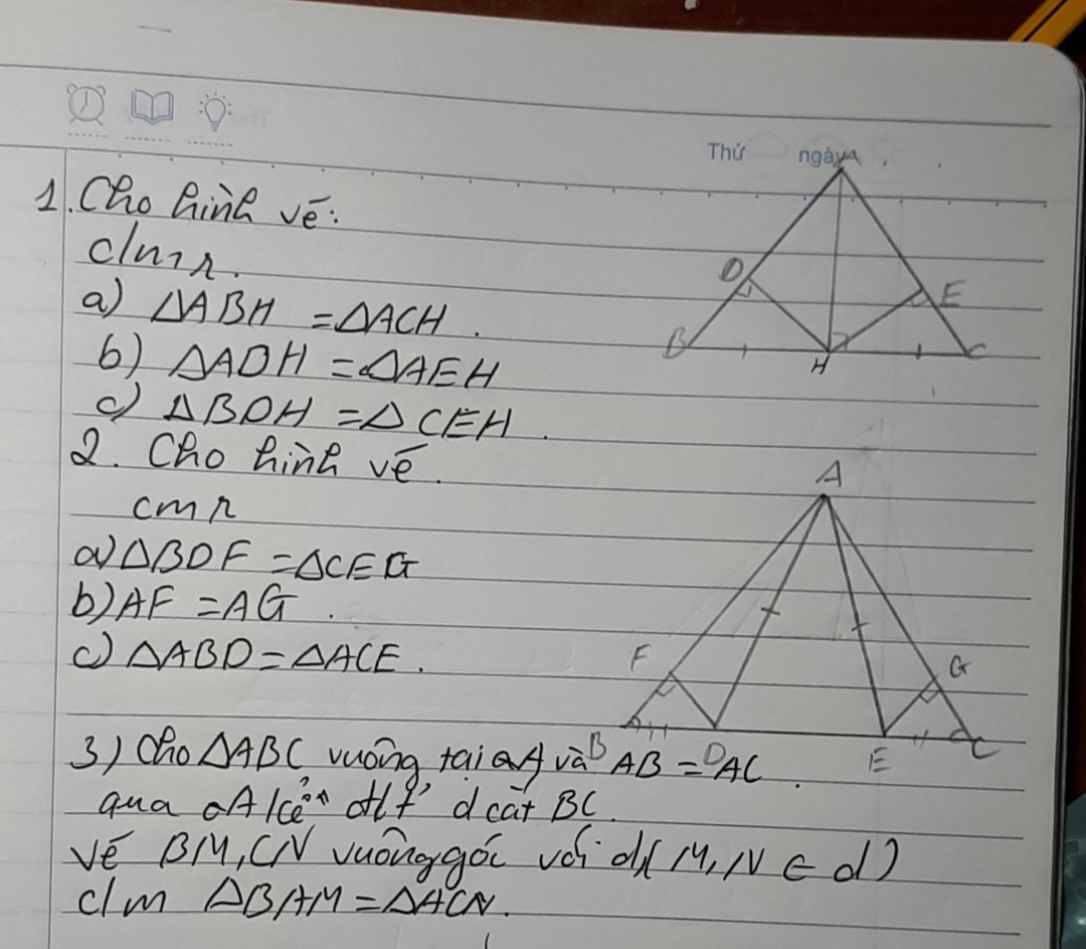 Thứ ngày
1. Cho hình vẽ:
c/m r.
a) ΔABH = ΔACH.
b) ΔADH = ΔAEH
c) ΔBDH = ΔCEH.
A
D
E
B
H
C
2. Cho hình vẽ.
cm r
a) ΔBDF = ΔCEG
b) AF = AG.
c) ΔABD = ΔACE.
A
F
G
B
D
E
C
3) Cho ΔABC vuông tại A và AB = AC.
qua A kẻ đt d cắt BC.
vẽ BM, CN vuông góc với d (M, N ∈ d)
c/m ΔBAM = ΔACN.